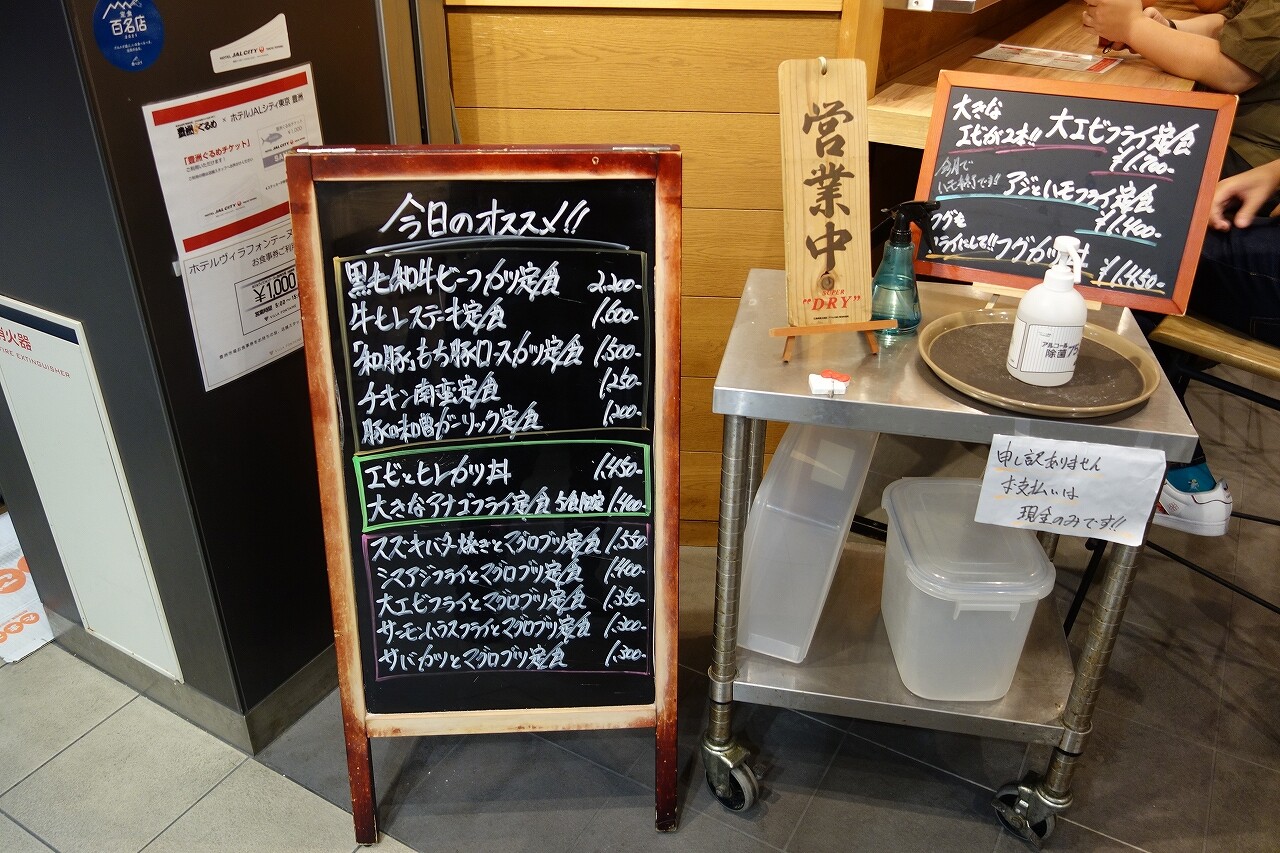 定食
百名店
2021
HOTEL JAL CITY
豊洲ぐるめ × ホテルJALシティ東京 豊洲
「豊洲ぐるめチケット」
ご利用いただけます!
ホテルヴィラフォンテーヌ
お食事券ご利用
¥1,000
消火器
FIRE EXTINGUISHER
今日のオススメ!!
黒毛和牛ビーフカツ定食 2,200-
牛ヒレステーキ定食 1,600-
「和豚」もち豚ロースカツ定食 1,500-
チキン南蛮定食 1,250-
豚の味噌ガーリック定食 1,200-
エビとヒレカツ丼 1,450-
大きなアナゴフライ定食 5食限定 1,400-
スズキバター焼きとマグロブツ定食 1,550-
シマアジフライとマグロブツ定食 1,400-
大エビフライとマグロブツ定食 1,350-
サーモンハラスフライとマグロブツ定食 1,300-
サバカツとマグロブツ定食 1,300-
営業中
SUPER
"DRY"
大きな
エビが2本!! 大エビフライ定食
¥1,700-
今月で
ハモ終了です!! アジとハモフライ定食
¥1,400-
フグも
フライにして!! フグカツ丼
¥1,450-
アルコール
除菌 75
申し訳ありません
お支払いは
現金のみです!!